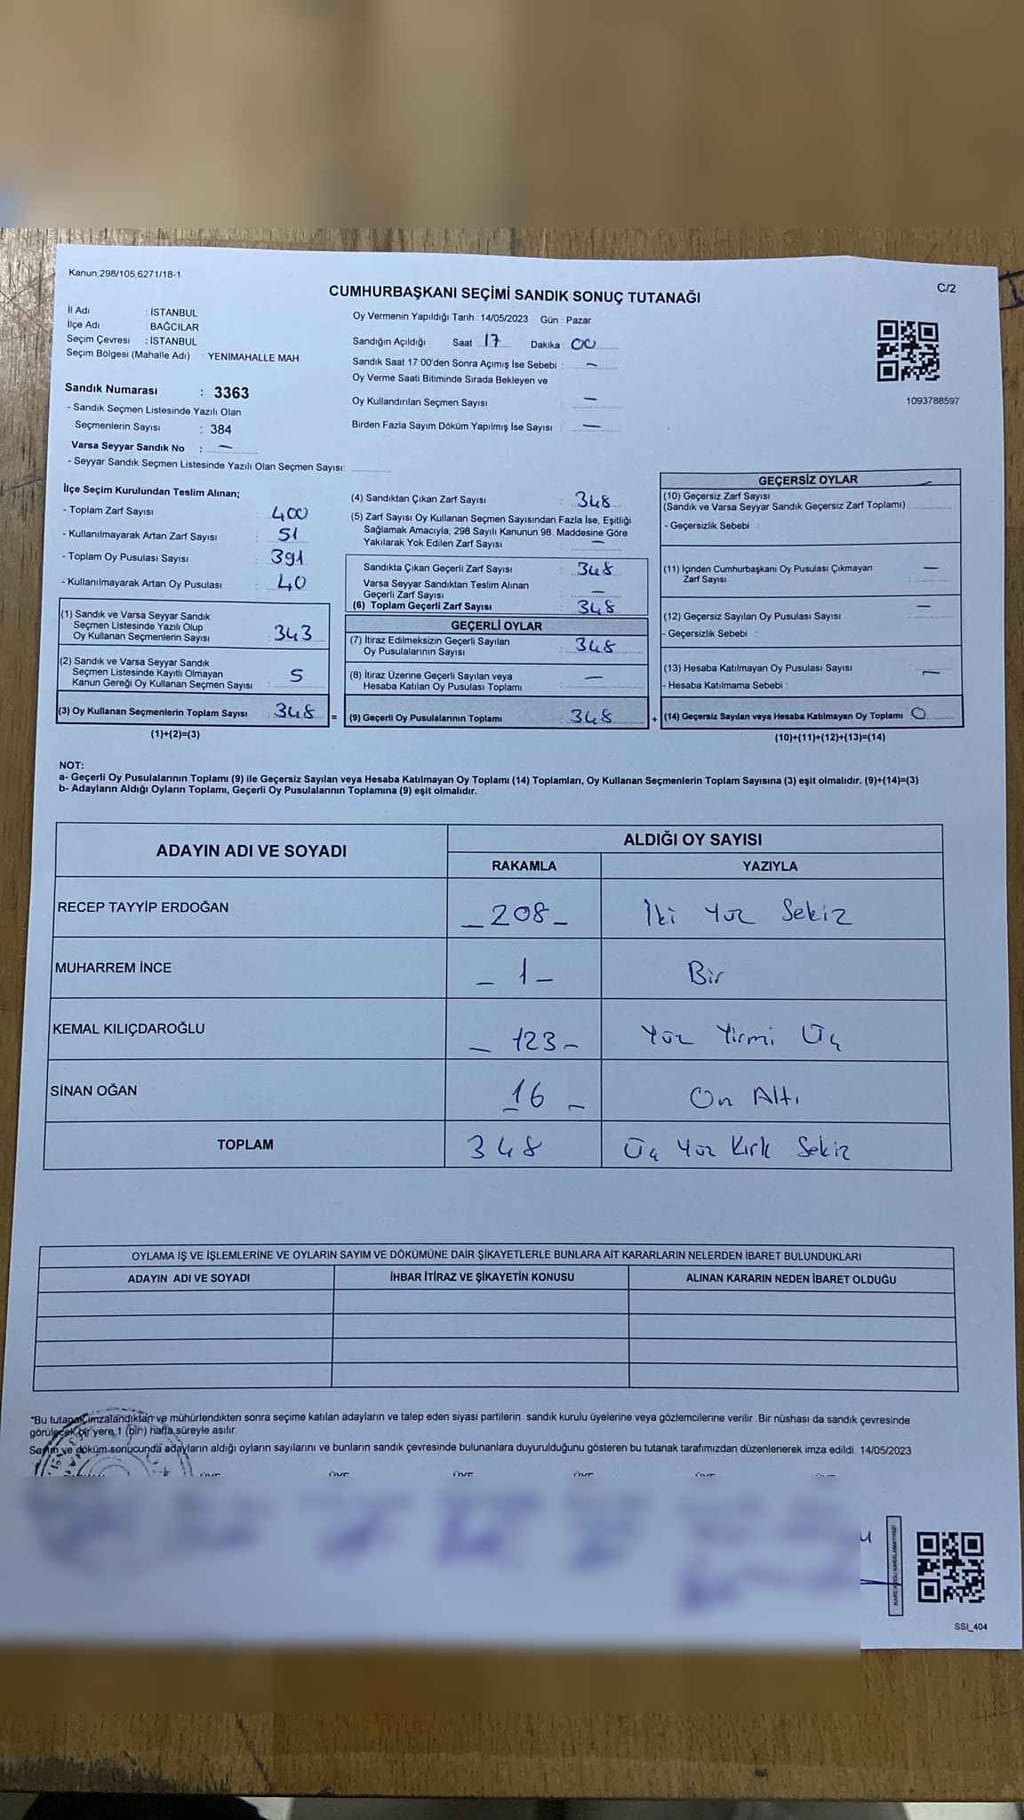 Kanun.298/105,6271/18-1
C/2
CUMHURBAŞKANI SEÇİMİ SANDIK SONUÇ TUTANAĞI
İl Adı : İSTANBUL
İlçe Adı : BAĞCILAR
Seçim Çevresi : İSTANBUL
Seçim Bölgesi (Mahalle Adı) : YENİMAHALLE MAH.
Oy Vermenin Yapıldığı Tarih :14/05/2023 Gün : Pazar
Sandığın Açıldığı Saat 17 Dakika : 00
Sandık Saat 17:00'den Sonra Açımış İse Sebebi : —
Oy Verme Saati Bitiminde Sırada Bekleyen ve
Oy Kullandırılan Seçmen Sayısı : —
Birden Fazla Sayım Döküm Yapılmış İse Sayısı : —
1093788597
Sandık Numarası : 3363
- Sandık Seçmen Listesinde Yazılı Olan
Seçmenlerin Sayısı : 384
Varsa Seyyar Sandık No : —
- Seyyar Sandık Seçmen Listesinde Yazılı Olan Seçmen Sayısı:
İlçe Seçim Kurulundan Teslim Alınan;
- Toplam Zarf Sayısı : 400
- Kullanılmayarak Artan Zarf Sayısı : 51
- Toplam Oy Pusulası Sayısı : 391
- Kullanılmayarak Artan Oy Pusulası : 40
(1) Sandık ve Varsa Seyyar Sandık
Seçmen Listesinde Yazılı Olup
Oy Kullanan Seçmenlerin Sayısı : 343
(2) Sandık ve Varsa Seyyar Sandık
Seçmen Listesinde Kayıtlı Olmayan
Kanun Gereği Oy Kullanan Seçmen Sayısı : 5
(3) Oy Kullanan Seçmenlerin Toplam Sayısı : 348
(1)+(2)=(3)
(4) Sandıktan Çıkan Zarf Sayısı : 348
(5) Zarf Sayısı Oy Kullanan Seçmen Sayısından Fazla İse, Eşitliği
Sağlamak Amacıyla, 298 Sayılı Kanunun 98. Maddesine Göre
Yakılarak Yok Edilen Zarf Sayısı : —
Sandıkta Çıkan Geçerli Zarf Sayısı : 348
Varsa Seyyar Sandıktan Teslim Alınan
Geçerli Zarf Sayısı : —
(6) Toplam Geçerli Zarf Sayısı : 348
GEÇERLİ OYLAR
(7) İtiraz Edilmeksizin Geçerli Sayılan
Oy Pusulalarının Sayısı : 348
(8) İtiraz Üzerine Geçerli Sayılan veya
Hesaba Katılan Oy Pusulası Toplamı : —
= (9) Geçerli Oy Pusulalarının Toplamı : 348
GEÇERSİZ OYLAR
(10) Geçersiz Zarf Sayısı —
(Sandık ve Varsa Seyyar Sandık Geçersiz Zarf Toplamı)
- Geçersizlik Sebebi :
(11) İçinden Cumhurbaşkanı Oy Pusulası Çıkmayan —
Zarf Sayısı
(12) Geçersiz Sayılan Oy Pusulası Sayısı —
- Geçersizlik Sebebi :
(13) Hesaba Katılmayan Oy Pusulası Sayısı —
- Hesaba Katılmama Sebebi :
+ (14) Geçersiz Sayılan veya Hesaba Katılmayan Oy Toplamı 0
(10)+(11)+(12)+(13)=(14)
NOT:
a- Geçerli Oy Pusulalarının Toplamı (9) ile Geçersiz Sayılan veya Hesaba Katılmayan Oy Toplamı (14) Toplamları, Oy Kullanan Seçmenlerin Toplam Sayısına (3) eşit olmalıdır. (9)+(14)=(3)
b- Adayların Aldığı Oyların Toplamı, Geçerli Oy Pusulalarının Toplamına (9) eşit olmalıdır.
ADAYIN ADI VE SOYADI ALDIĞI OY SAYISI
RAKAMLA YAZIYLA
RECEP TAYYİP ERDOĞAN - 208 - İki Yüz Sekiz
MUHARREM İNCE - 1 - Bir
KEMAL KILIÇDAROĞLU - 123 - Yüz Yirmi Üç
SİNAN OĞAN - 16 - On Altı
TOPLAM 348 Üç Yüz Kırk Sekiz
OYLAMA İŞ VE İŞLEMLERİNE VE OYLARIN SAYIM VE DÖKÜMÜNE DAİR ŞİKAYETLERLE BUNLARA AİT KARARLARIN NELERDEN İBARET BULUNDUKLARI
ADAYIN ADI VE SOYADI İHBAR İTİRAZ VE ŞİKAYETİN KONUSU ALINAN KARARIN NEDEN İBARET OLDUĞU
*Bu tutanak imzalandıktan ve mühürlendikten sonra seçime katılan adayların ve talep eden siyasi partilerin sandık kurulu üyelerine veya gözlemcilerine verilir. Bir nüshası da sandık çevresinde
görülecek bir yere 1 (bir) hafta süreyle asılır.
Sayım ve döküm sonucunda adayların aldığı oyların sayılarını ve bunların sandık çevresinde bulunanlara duyurulduğunu gösteren bu tutanak tarafımızdan düzenlenerek imza edildi. 14/05/2023
SSİ_404